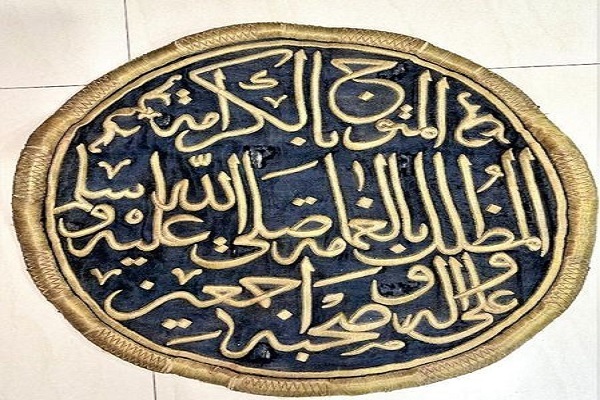 المتوج بالكرامة
المظلل بالغمامة صلى الله عليه وسلم
وعلى آله وصحبه اجمعين